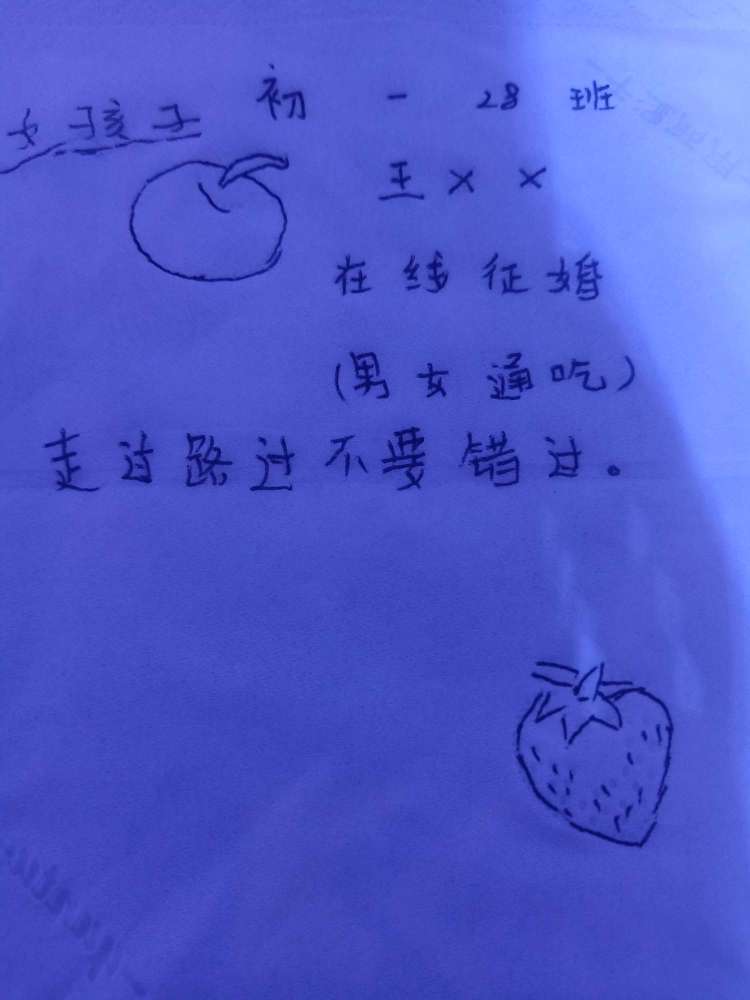 女孩子
初一 28 班
王 × ×
在线征婚
(男女通吃)
走过路过不要错过。